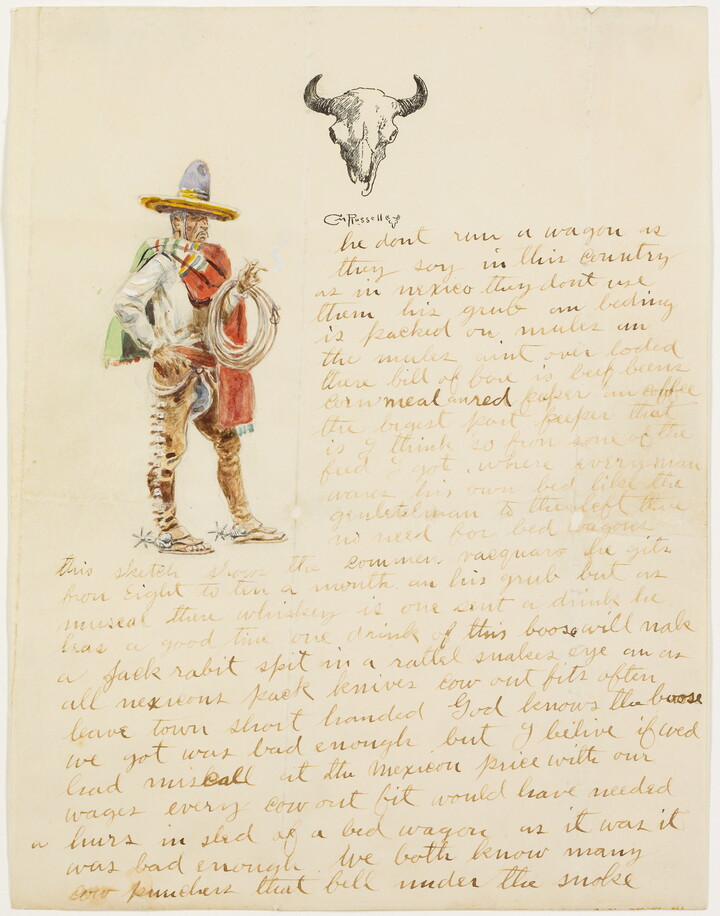 CM Russell
he dont run a wagon as
they say in this country
as in mexico they dont use
them his grub an beding
is packed on mules an
the mules aint over loded
thare bill of fare is beef beens
corn meal an red peper an coffie
the bigest part peper that
is I think so from some of the
feed I got where every man
wares his own bed like the
gentelman to the left thire
no need for bed wagons
this sketch shows the common vacquaro he gits
from Eight to ten a month an his grub but as
muscal there whiskey is one sent a drink he
has a good time one drink of this boose will make
a Jack rabit spit in a rattel snakes eye an as
all mexicons pack knives cow out fits often
leave town short handed God knows the boose
we got was bad enough but I belive if wed
had miscall at the Mexicon price with our
wages every cow out fit would have needed
a hurs in sted of a bed wagon as it was it
was bad enough We both know many
cow punchers that bell under the smoke